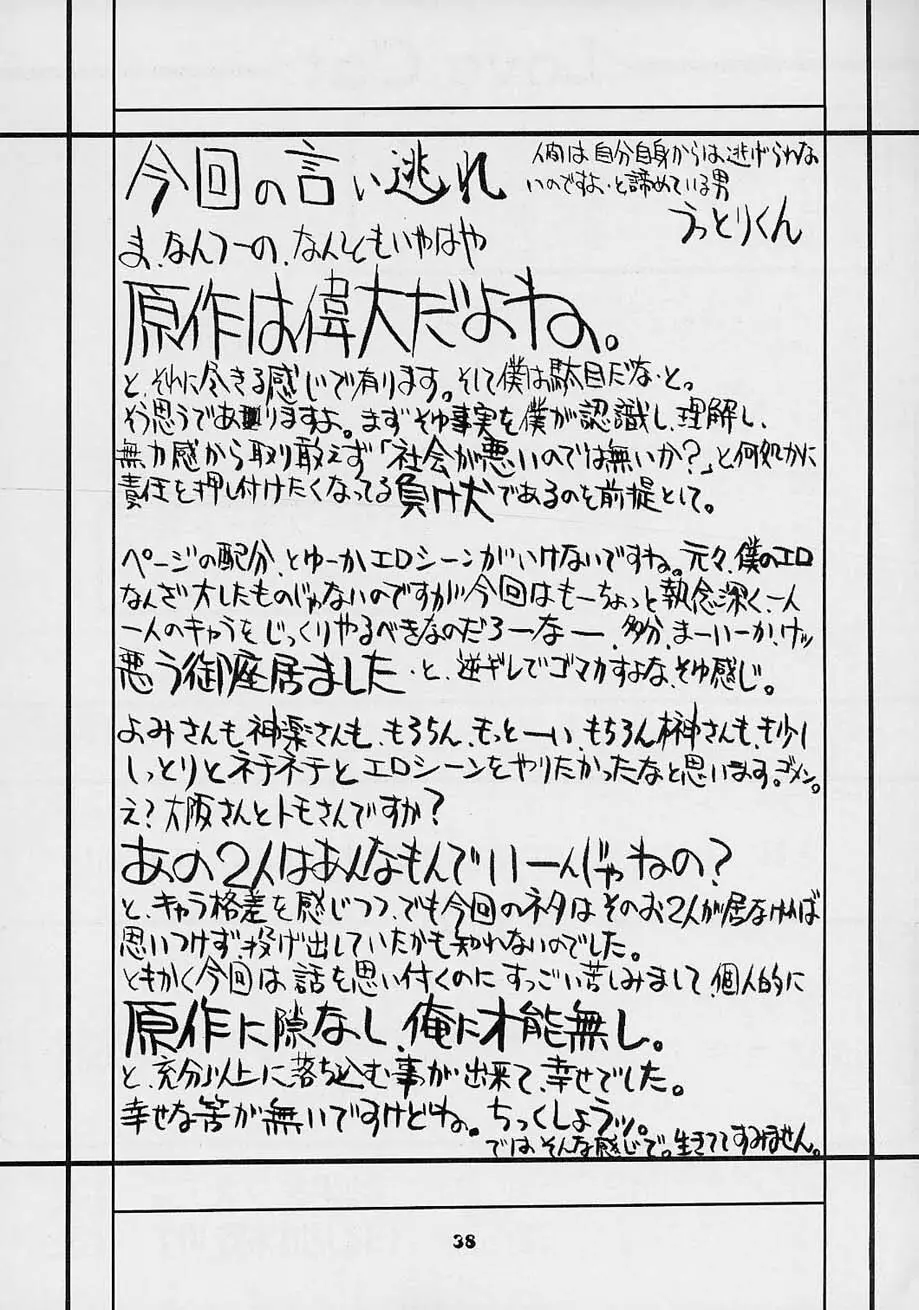 今回の言い逃れ
人間は自分自身からは逃げられな
いのですよ・と諦めている男
うっとりくん
ま、なんつーの、なんともいやはや
原作は偉大だよね。
と、それに尽きる感じで有ります。そして僕は駄目だな・と。
そう思うであリますよ。まずそゆ事実を僕が認識し、理解し、
無力感から取り敢えず「社会が悪いのでは無いか?」と何処かに
責任を押し付けたくなってる負け犬であるのを前提として。
ページの配分、とゆーかエロシーンがいけないですね。元々、僕のエロ
なんざ大したものじゃないのですが今回はもーちょっと執念深く、一人
一人のキャラをじっくりやるべきなのだろーなー、多分、まーいーか、ケッ
悪う御座居ました・と、逆ギレでゴマカすよな、そゆ感じ。
よみさんも、神楽さんも、もろちん、もっとーい、もちろん榊さんも、も少し
しっとりとネチネチとエロシーンをやりたかったなと思います。ゴメン。
え?大阪さんとトモさんですか?
あの2人はあんなもんでいーんじゃねの?
と、キャラ格差を感じつつ、でも今回のネタはそのお2人が居なければ
思いつけず、投げ出していたかも知れないのでした。
ともかく今回は話を思い付くのにすっごい苦しみまして、個人的に
原作に隙なし、俺に才能無し。
と、充分以上に落ち込む事が出来て、幸せでした。
幸せな筈が無いですけどね。ちっくしょうッ。
では、そんな感じで。生きててすみません。
38